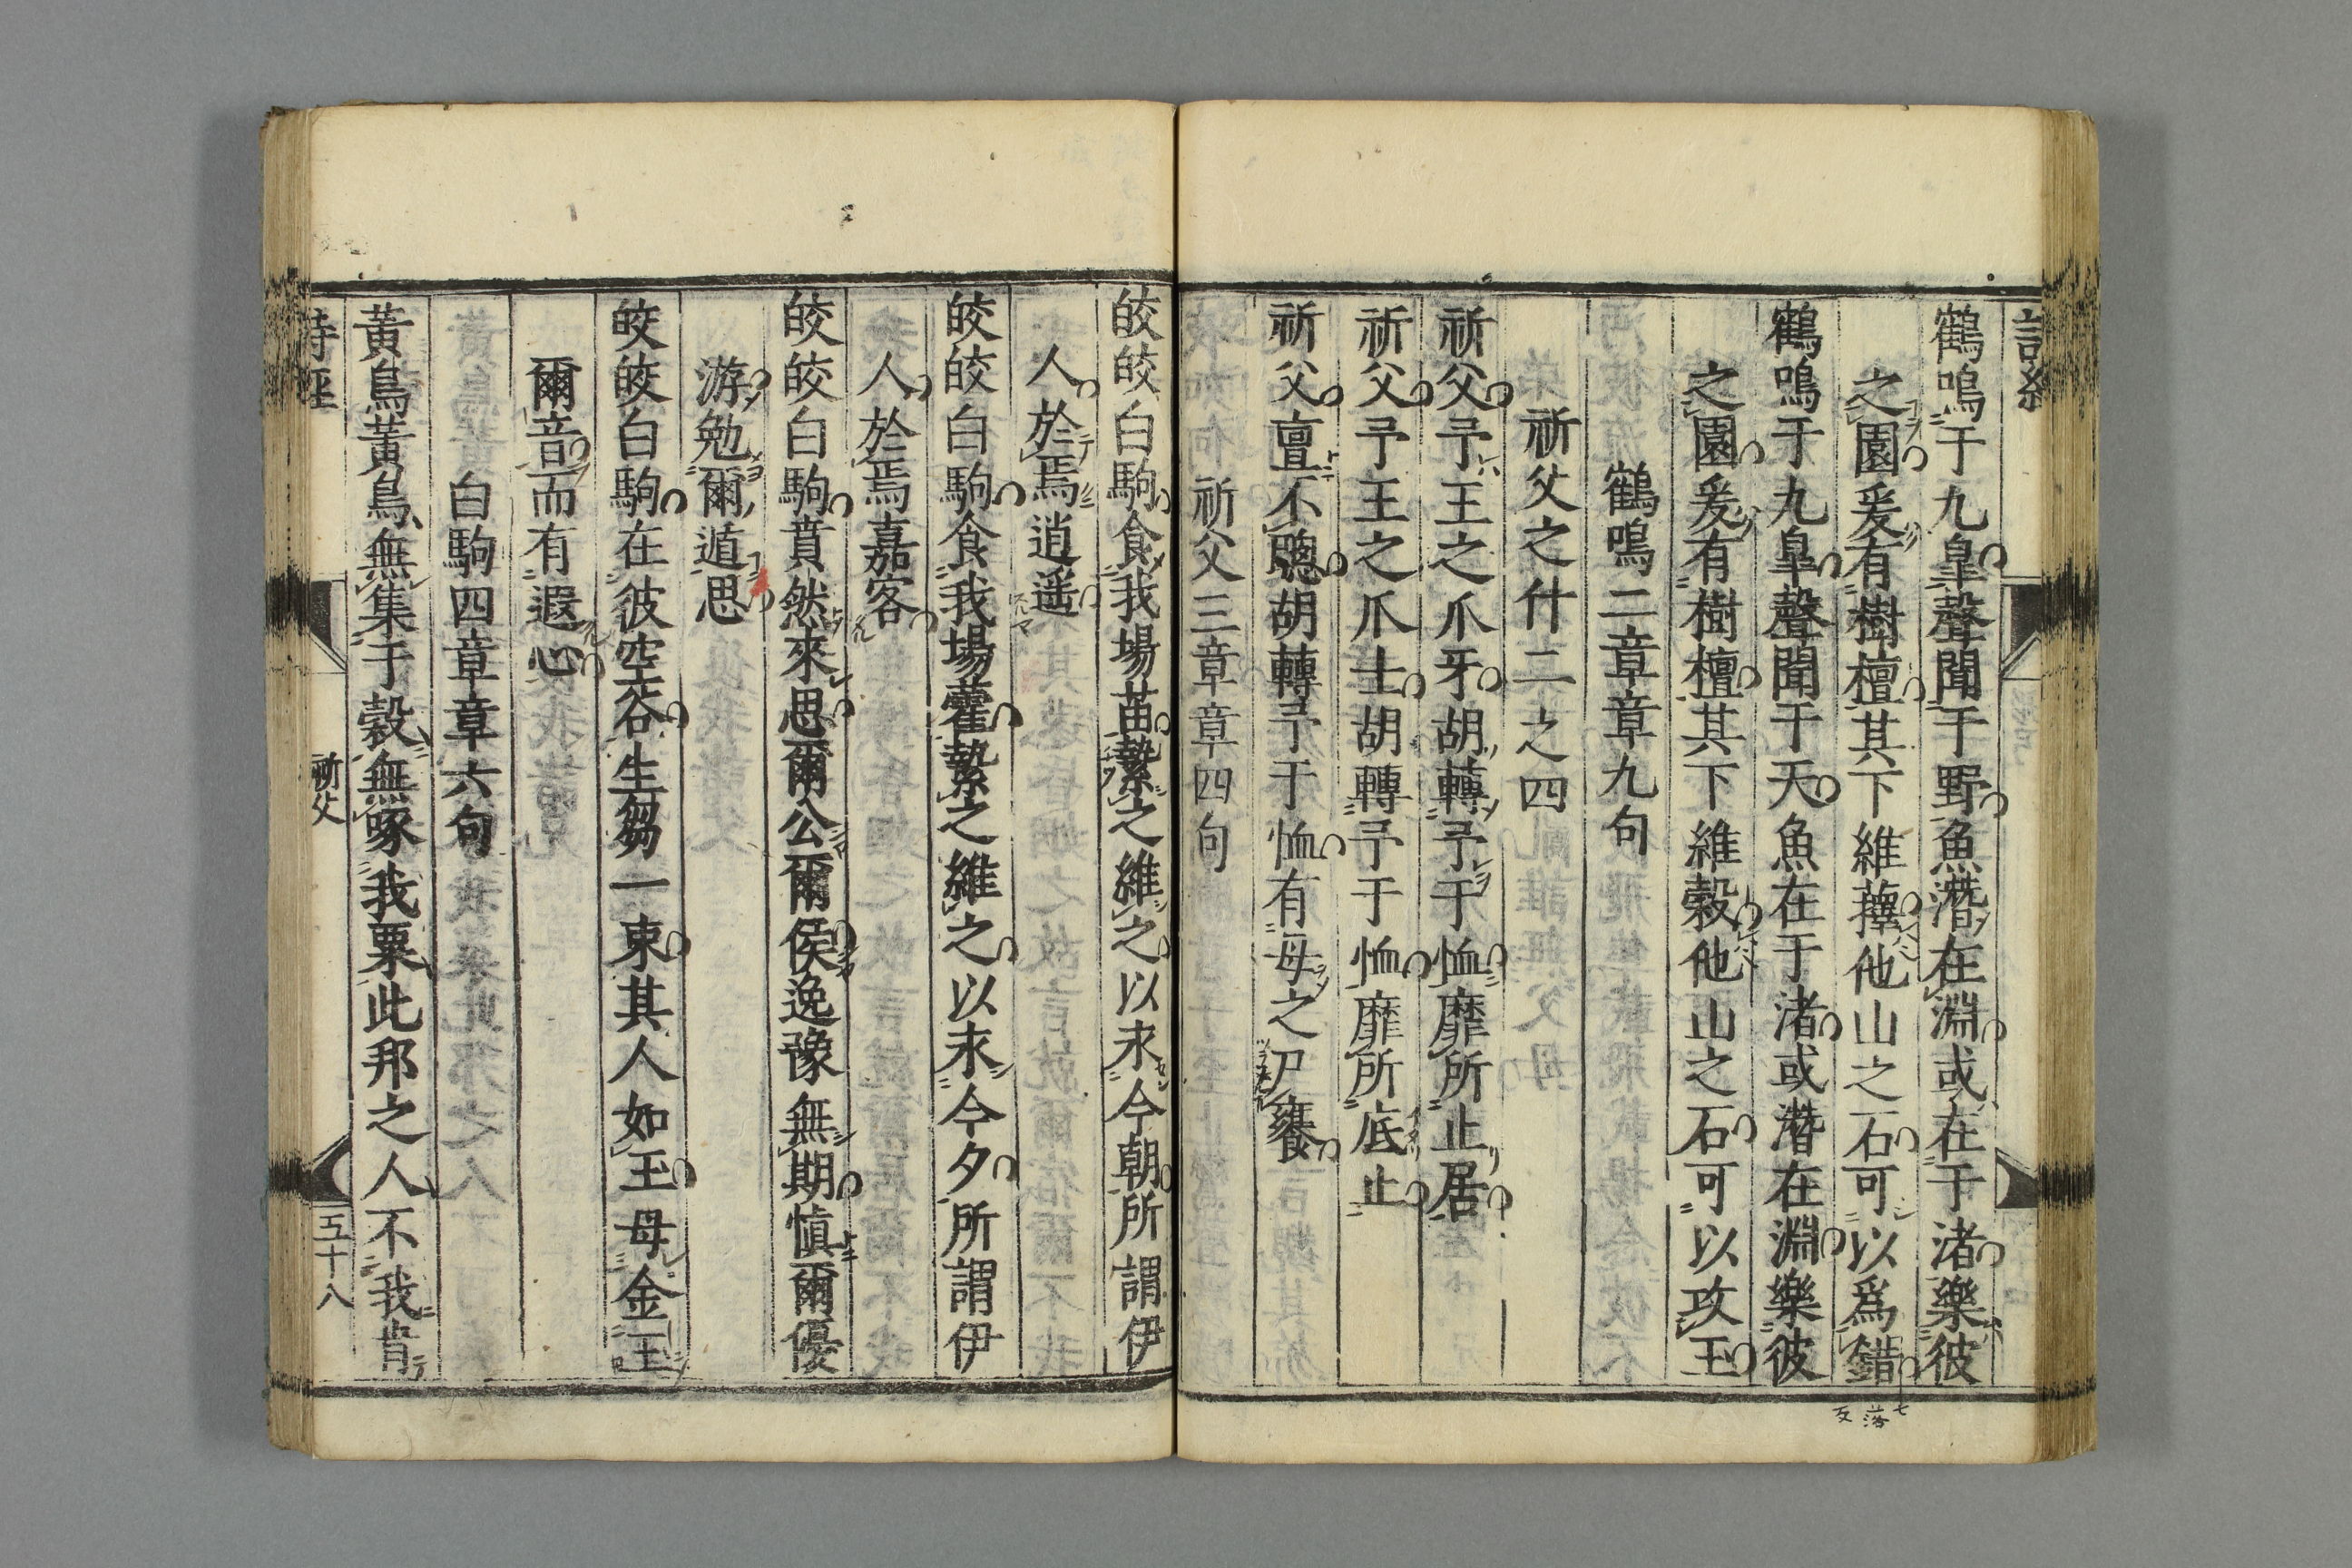 鶴鳴于九皐聲聞于野魚潛在淵或在于渚樂彼
之園爰有樹檀其下維蘀他山之石可以爲錯
鶴鳴于九皐聲聞于天魚在于渚或潛在淵樂彼
之園爰有樹檀其下維榖他山之石可以攻玉
鶴鳴二章章九句
祈父之什二之四
祈父予王之爪牙胡轉予于恤靡所止居
祈父予王之爪士胡轉予于恤靡所底止
祈父亶不聰胡轉予于恤有母之尸饔
祈父三章章四句
皎皎白駒食我場苗縶之維之以永今朝所謂伊
人於焉逍遥
皎皎白駒食我場藿縶之維之以永今夕所謂伊
人於焉嘉客
皎皎白駒賁然來思爾公爾侯逸豫無期慎爾優
游勉爾遁思
皎皎白駒在彼空谷生芻一束其人如玉毋金玉
爾音而有遐心
白駒四章章六句
黃鳥黃鳥無集于榖無啄我粟此邦之人不我肯
詩經
祈父
五十八